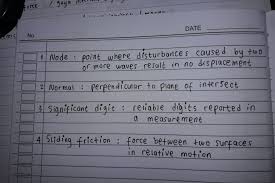 DATE
No
1 Node : point where disturbances caused by two
or more waves result in no displacement
2 Normal : perpendicular to plane of intersect
3 Significant digit : reliable digits reported in
a measurement
4 Sliding friction : force between two surfaces
in relative motion